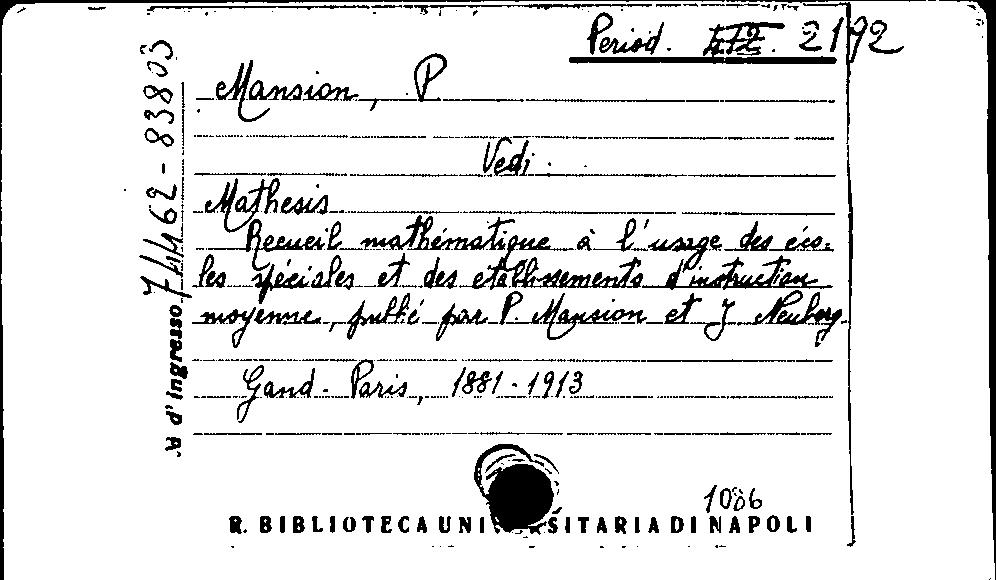 Period. 21/92
Mansion, P
Vedi.
Mathesis
Recueil mathématique à l'usage des éco-
les spéciales et des etablissements d'instruction
moyenne, publié par P. Mansion et J Neuberg.
Gand - Paris, 1881-1913
1086
R. BIBLIOTECA UNIVERSITARIA DI NAPOLI
N d'ingresso 71462-83803